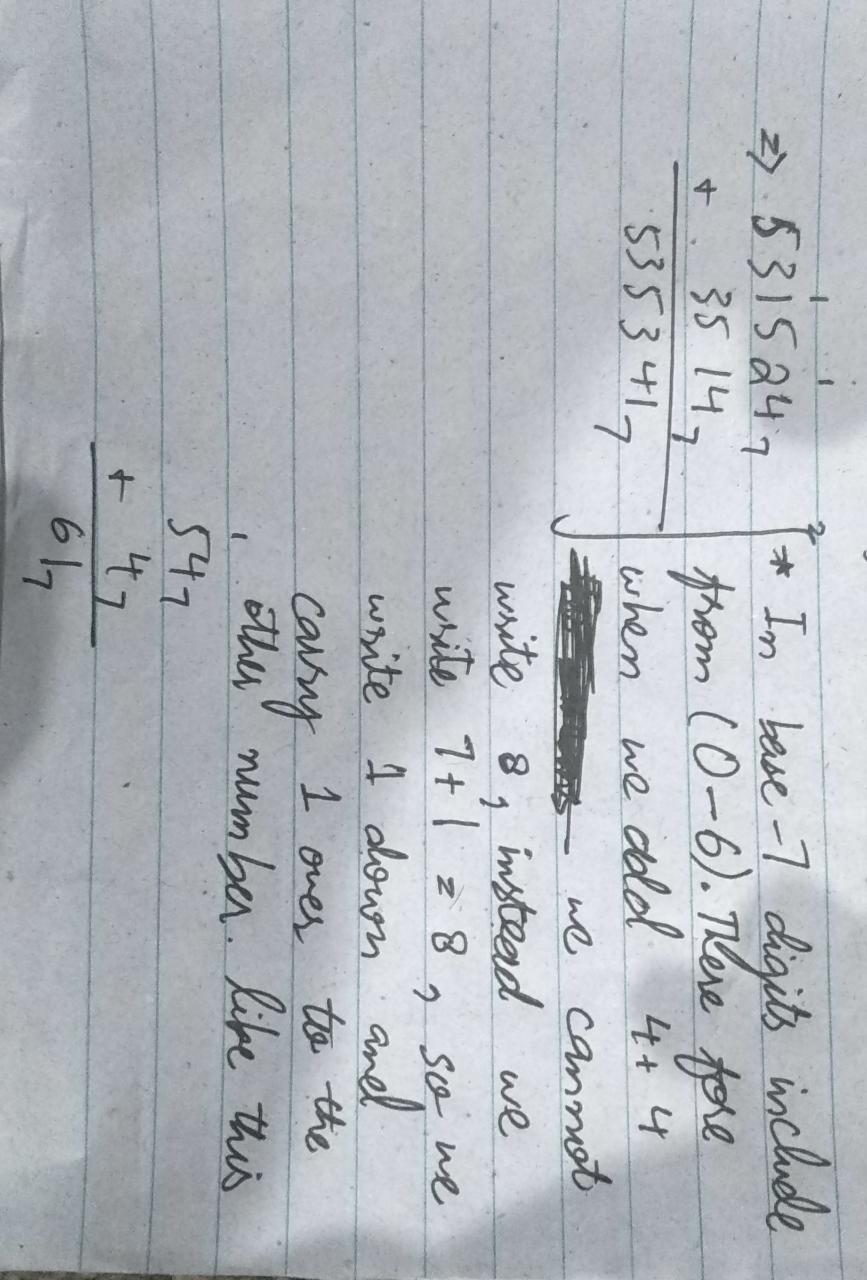 1 1
=> 531524₇
+ 3514₇
535341₇
* In base-7 digits include
from (0-6). There fore
when we add 4+4
we cannot
write 8, instead we
write 7+1 = 8, so we
write 1 down and
carry 1 over to the
other number. like this
1
54₇
+ 4₇
61₇